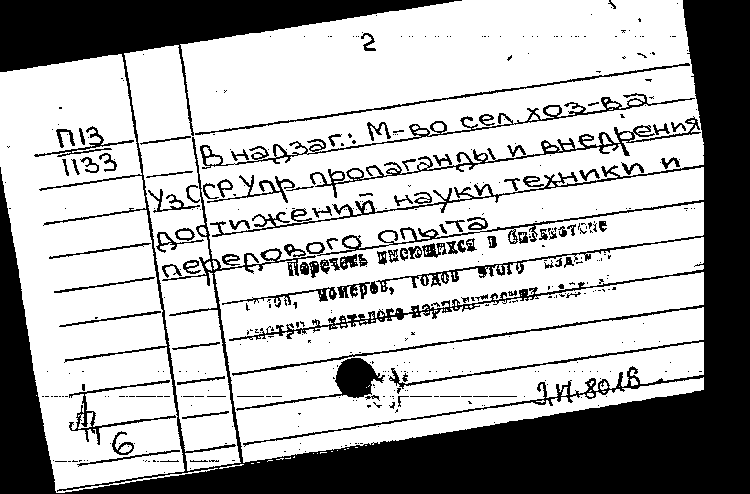 2
П13
1133
В надзаг.: М-во сел. хоз-ва
УзССР. Упр. пропаганды и внедрения
достижений науки, техники и
передового опыта
Перечень имеющихся в библиотеке
томов, номеров, годов этого издания
смотри в каталоге периодических изданий
6